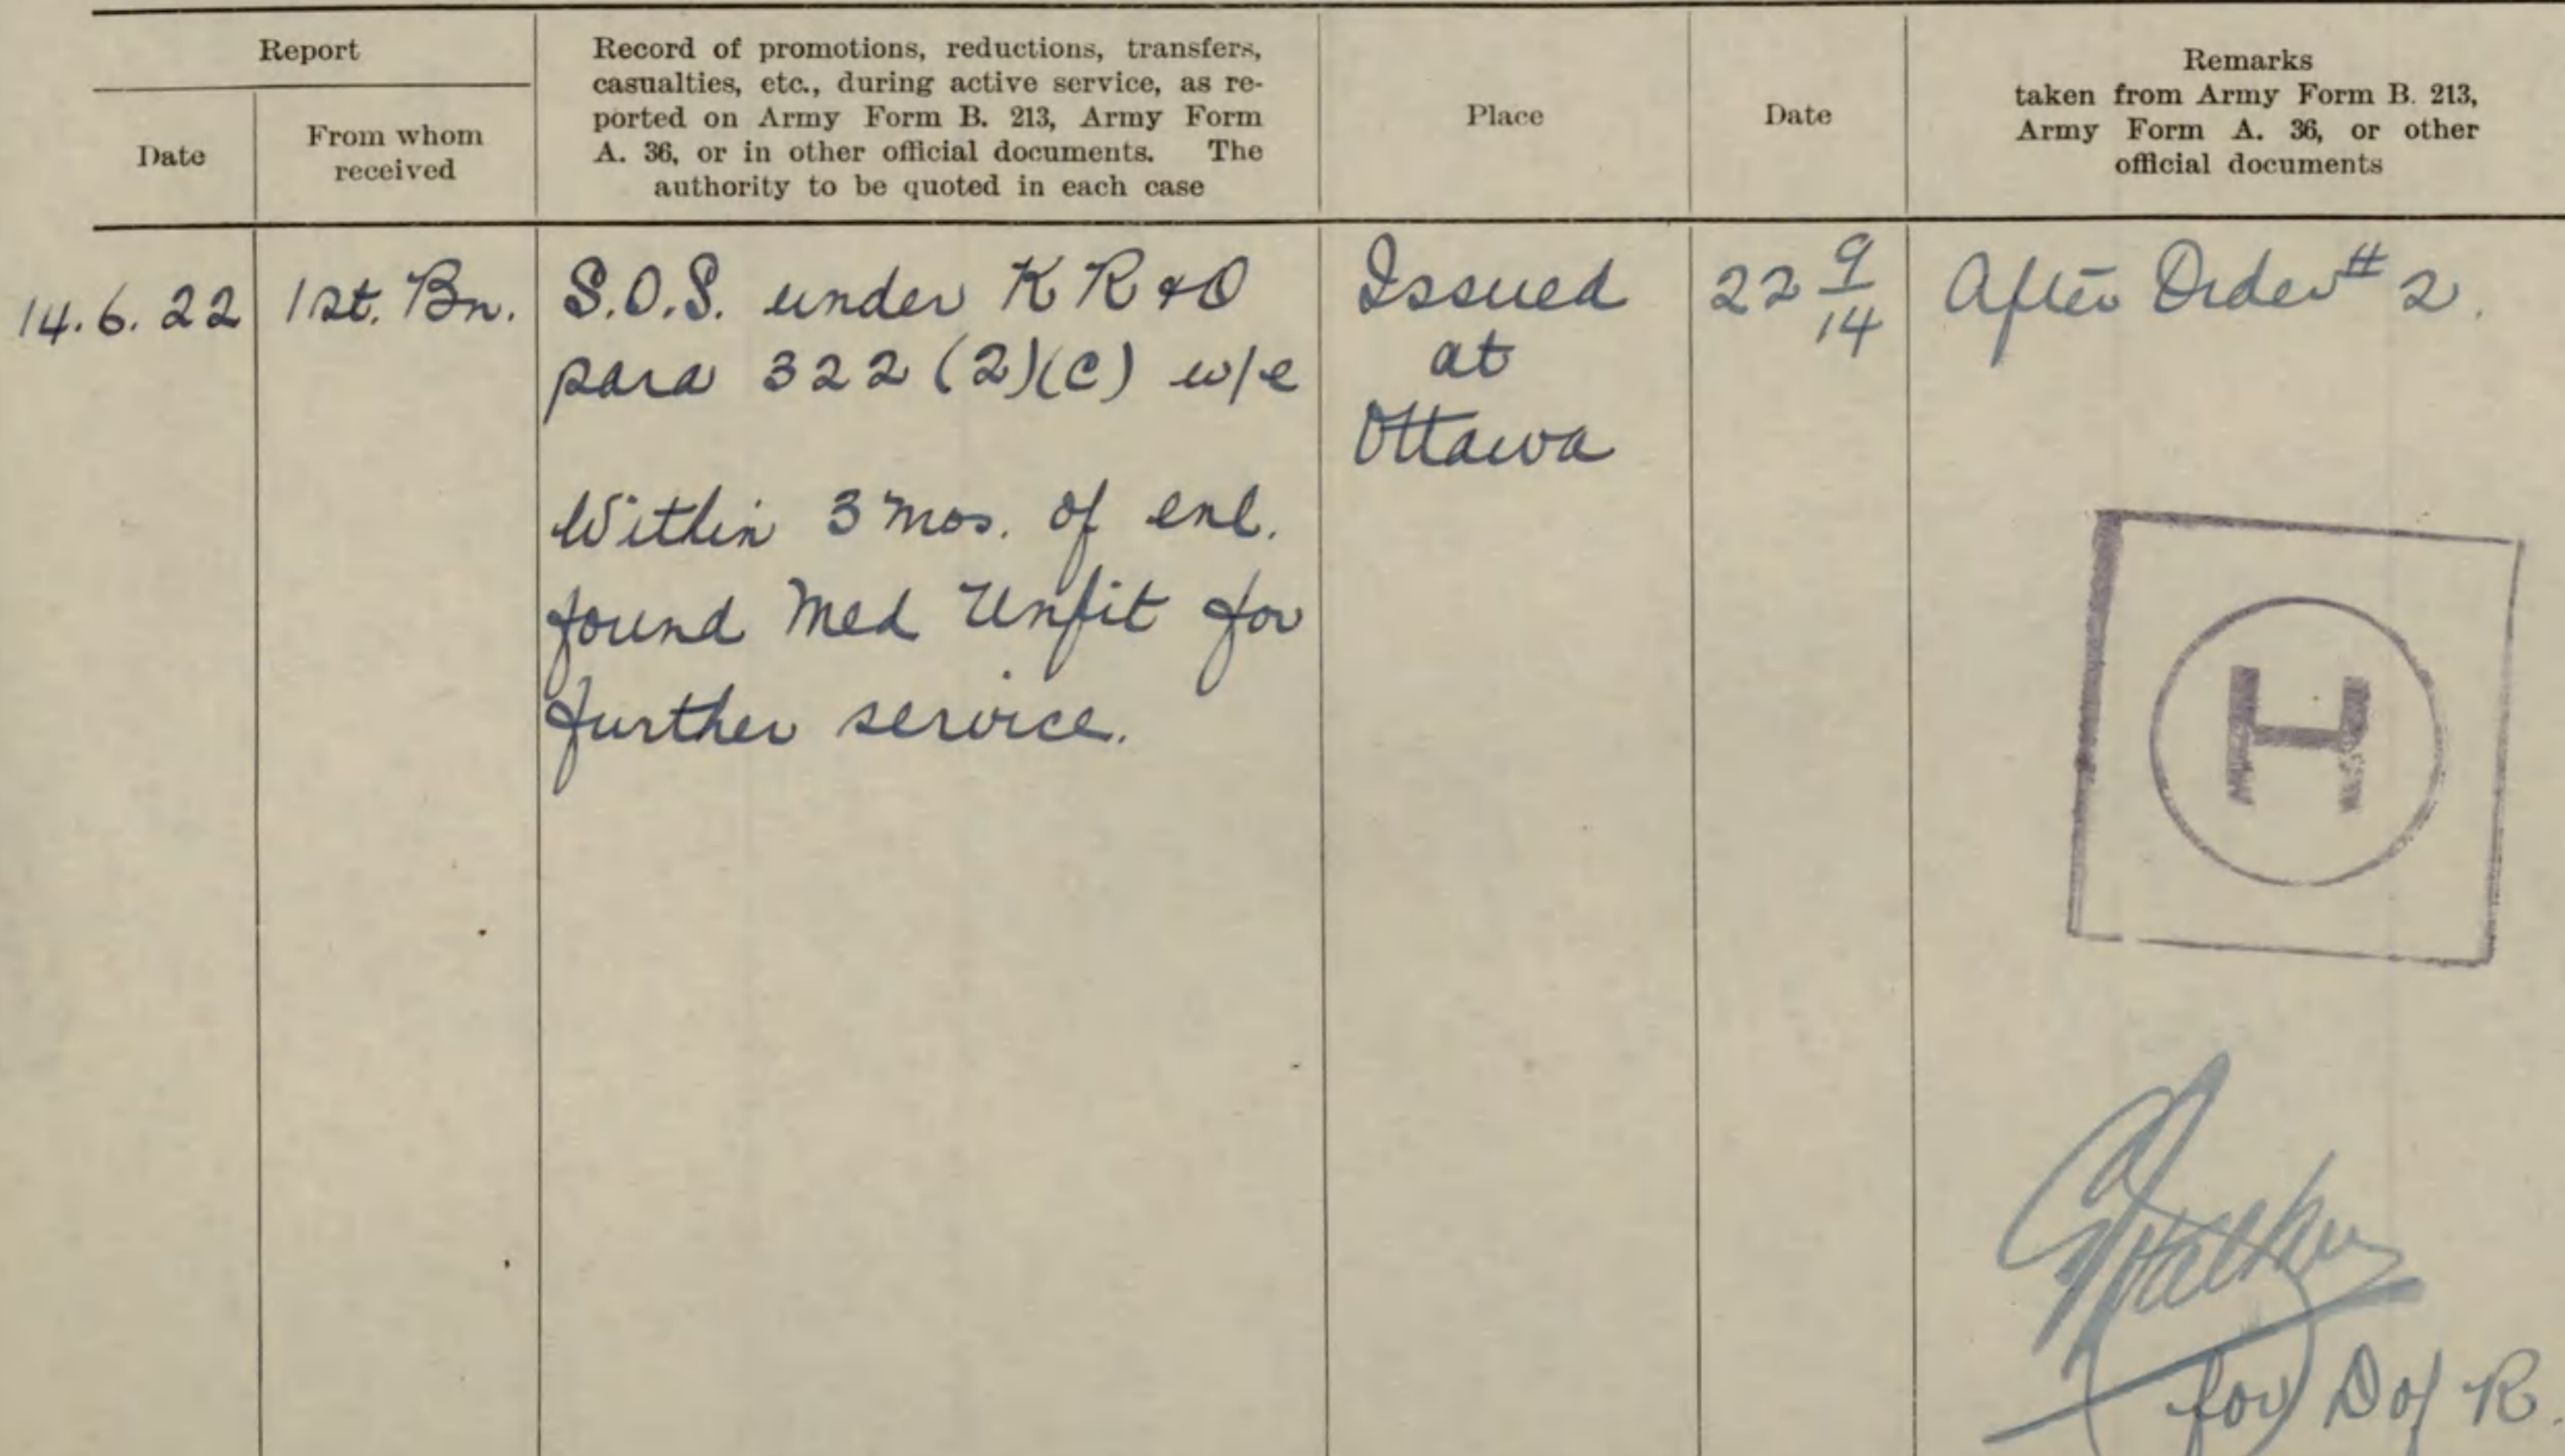 Report
Date
From whom
received
Record of promotions, reductions, transfers,
casualties, etc., during active service, as re-
ported on Army Form B. 213, Army Form
A. 36, or in other official documents. The
authority to be quoted in each case
Place
Date
Remarks
taken from Army Form B. 213,
Army Form A. 36, or other
official documents
14.6.22
1st. Bn.
S.O.S. under K R & O
para 322 (2)(c) w/e
Within 3 mos. of enl.
found Med Unfit for
further service.
Issued
at
Ottawa
22 9/14
After Order # 2.
H
for D of R.